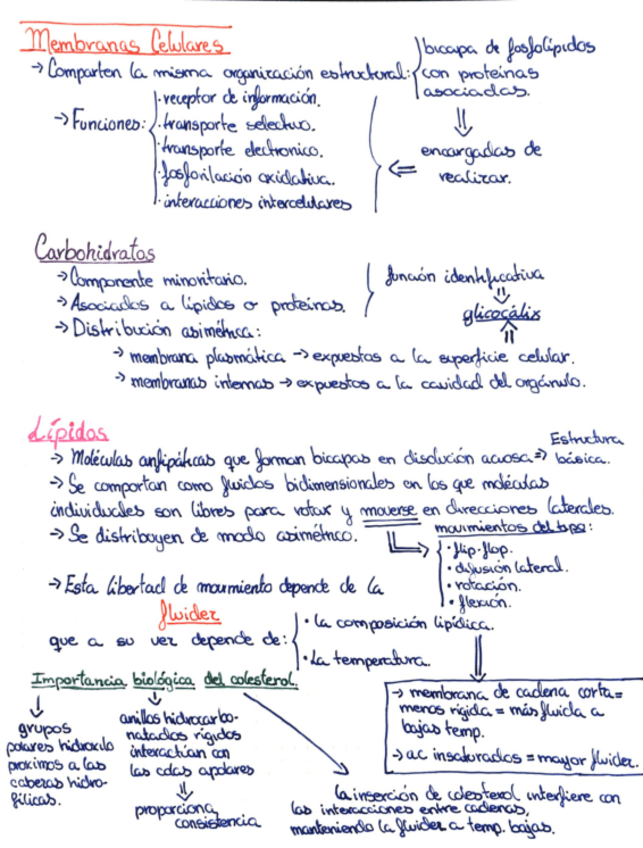 Membranas Celulares
→ Comparten la misma organización estructural: bicapa de fosfolípidos
con proteínas
asociadas.
⇓
encargadas de
realizar.
⇐
→ Funciones:
· receptor de información.
· transporte selectivo.
· transporte electronico.
· fosforilación oxidativa.
· interacciones intercelulares
Carbohidratos
→ Componente minoritario.
→ Asociados a lípidos o proteínas.
función identificativa
⇓
glicocálix
⇑
→ Distribución asimétrica:
→ membrana plasmática → expuestos a la superficie celular.
→ membranas internas → expuestos a la cavidad del orgánulo.
Lípidos
→ Moléculas anfipáticas que forman bicapas en disolución acuosa ⇒ Estructura
básica.
→ Se comportan como fluidos bidimensionales en los que moléculas
individuales son libres para rotar y moverse en direcciones laterales.
→ Se distribuyen de modo asimétrico.
movimientos del tipo:
· flip-flop.
· difusión lateral.
· rotación.
· flexión.
→ Esta libertad de movimiento depende de la
fluidez
que a su vez depende de:
· la composición lipídica.
· La temperatura.
→ membrana de cadena corta =
menos rígida = más fluida a
bajas temp.
→ ac insaturados = mayor fluidez.
Importancia biológica del colesterol.
grupos
polares hidroxilo
proximos a las
cabezas hidro-
fílicas.
anillos hidrocarbo-
natados rígidos
interactúan con
las colas apolares
⇓
proporciona
consistencia
la inserción de colesterol interfiere con
las interacciones entre cadenas,
manteniendo la fluidez a temp. bajas.